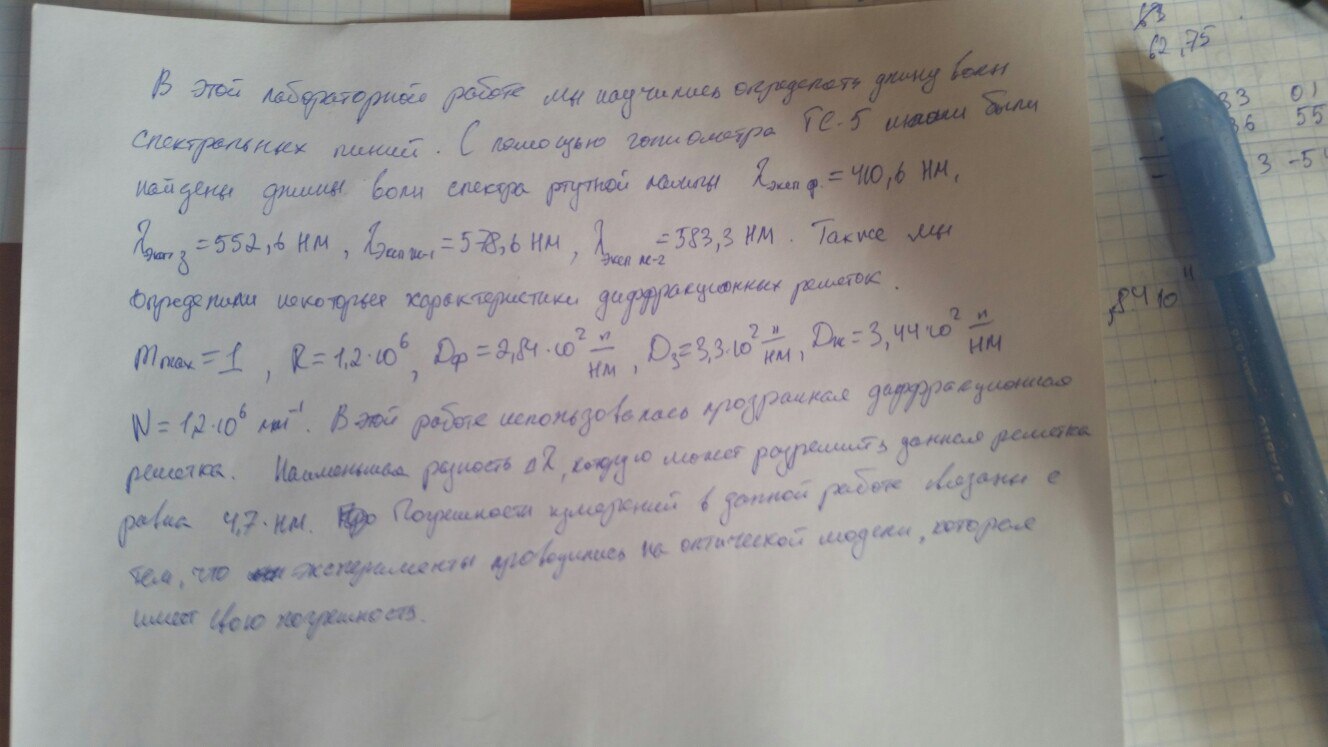 В этой лабораторной работе мы научились определять длину волны
спектральных линий. С помощью гониометра ГС-5 были
найдены длины волн спектра ртутной лампы λэксп ф. = 410,6 НМ,
λэксп з = 552,6 НМ, λэксп ж-1 = 578,6 НМ, λэксп ж-2 = 583,3 НМ. Также мы
определили некоторые характеристики дифракционных решеток.
m max = 1, R = 1,2·10⁶, Dф = 2,84·10² п/НМ, Dз = 3,3·10² п/НМ, Dж = 3,44·10² п/НМ
N = 1,2·10⁶ В этой работе использовалась прозрачная дифракционная
решетка. Наименьшая разность Δλ, которую может разрешить данная решетка
равна 4,7· нм. Погрешности измерений в данной работе связаны с
тем, что эксперименты проводились на оптической модели, которая
имеет свою погрешность.
63
62,75
33 01
36 55
3 -54